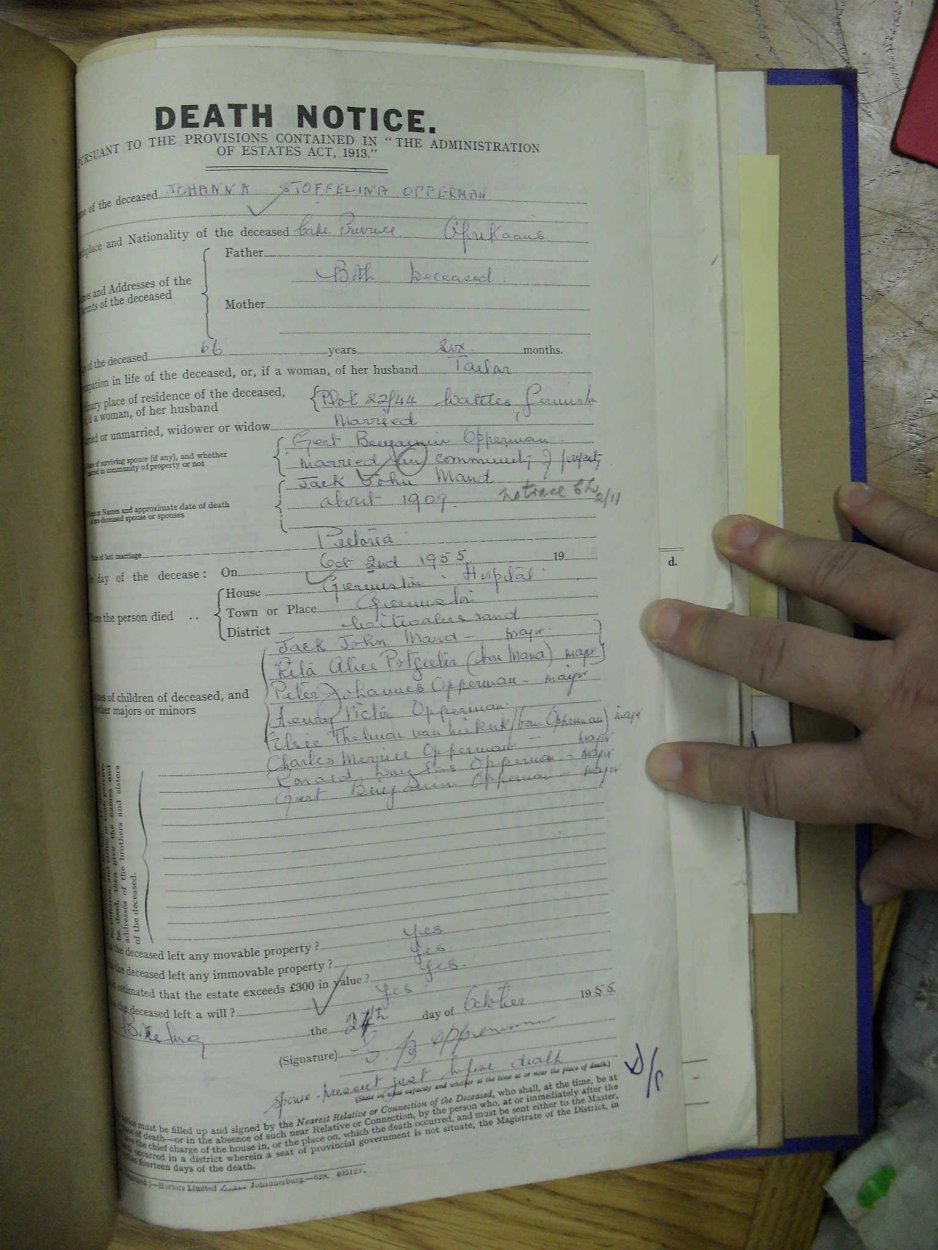 DEATH NOTICE.
PURSUANT TO THE PROVISIONS CONTAINED IN "THE ADMINISTRATION
OF ESTATES ACT, 1913."
of the deceased JOHANNA STOFFELINA OPPERMAN
and Nationality of the deceased Cape Province Afrikaans
Father
and Addresses of the
of the deceased
Both Deceased.
Mother
of the deceased 66 years six months.
in life of the deceased, or, if a woman, of her husband Tailor
place of residence of the deceased,
a woman, of her husband
Plot 22/44
or unmarried, widower or widow Married
of surviving spouse (if any), and whether
in community of property or not
Gert Benjamin Opperman
married in community of property
Jack John Mand
or Names and approximate date of death
spouse or spouses
about 1909. no trace 2/11
of last marriage Pretoria
day of the decease: On Oct 2nd 1955 19
the person died ..
House Germiston Hospital
Town or Place Germiston
District Witwatersrand
of children of deceased, and
majors or minors
Jack John Mand - major
Rita Alice Potgieter (born Mand) major
Peter Johannes Opperman - major
Henry Victor Opperman
Elsie Thelma van (born Opperman) major
Charles Opperman - major
Ronald Douglas Opperman - major
Gert Benjamin Opperman - major
be dead, then give the names and
addresses of the brothers and sisters
of the deceased.
the deceased left any movable property? Yes
the deceased left any immovable property? Yes.
estimated that the estate exceeds £300 in value? Yes.
the deceased left a will? Yes
the 24th day of October 1955
(Signature) G B Opperman
spouse - present just before death
(State in what capacity and whether at the time at or near the place of death.)
D/P
must be filled up and signed by the Nearest Relative or Connection of the Deceased, who shall, at the time, be at
of death—or in the absence of such near Relative or Connection, by the person who, at or immediately after the
the chief charge of the house in, or the place on, which the death occurred, and must be sent either to the Master,
occurred in a district wherein a seat of provincial government is not situate, the Magistrate of the District, in
fourteen days of the death.
Hortors Limited Johannesburg.
d.